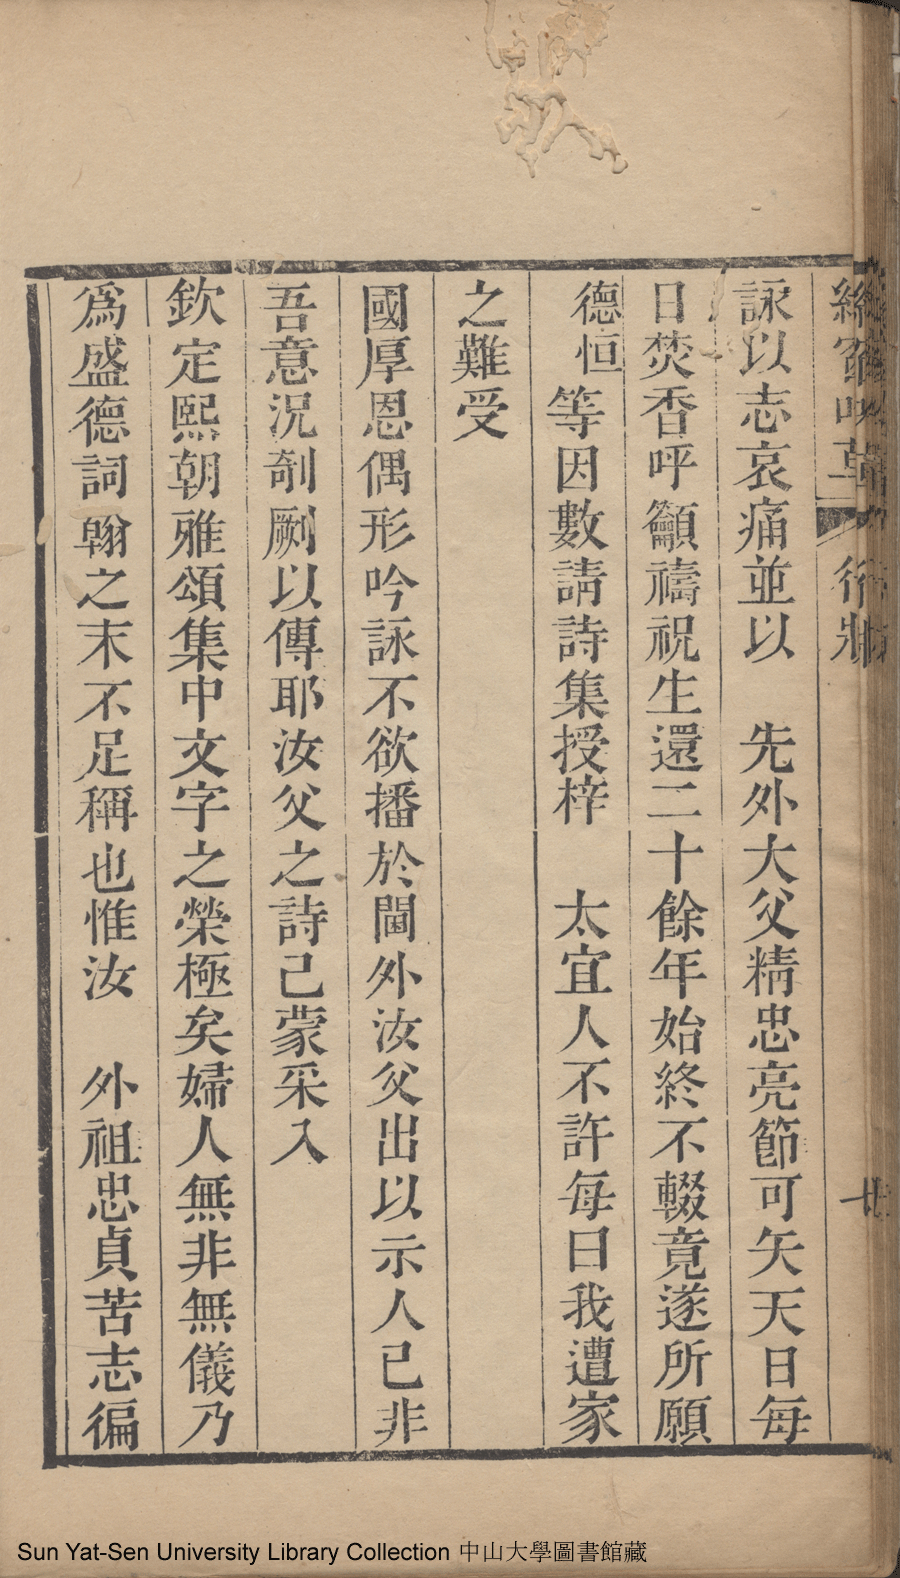 詠以志哀痛並以　先外大父精忠亮節可矢天日每
日焚香呼籲禱祝生還二十餘年始終不輟竟遂所願
德恒等因數請詩集授梓　太宜人不許每曰我遭家
之難受
國厚恩偶形吟詠不欲播於閫外汝父出以示人已非
吾意況剞劂以傳耶汝父之詩已蒙采入
欽定熙朝雅頌集中文字之榮極矣婦人無非無儀乃
為盛德詞翰之末不足稱也惟汝　外祖忠貞苦志徧
Sun Yat-Sen University Library Collection 中山大學圖書館藏